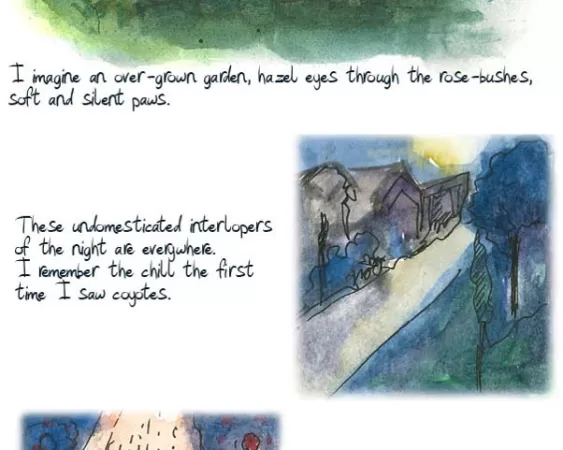 I imagine an over-grown garden, hazel eyes through the rose-bushes,
soft and silent paws.
These undomesticated interlopers
of the night are everywhere.
I remember the chill the first
time I saw coyotes.